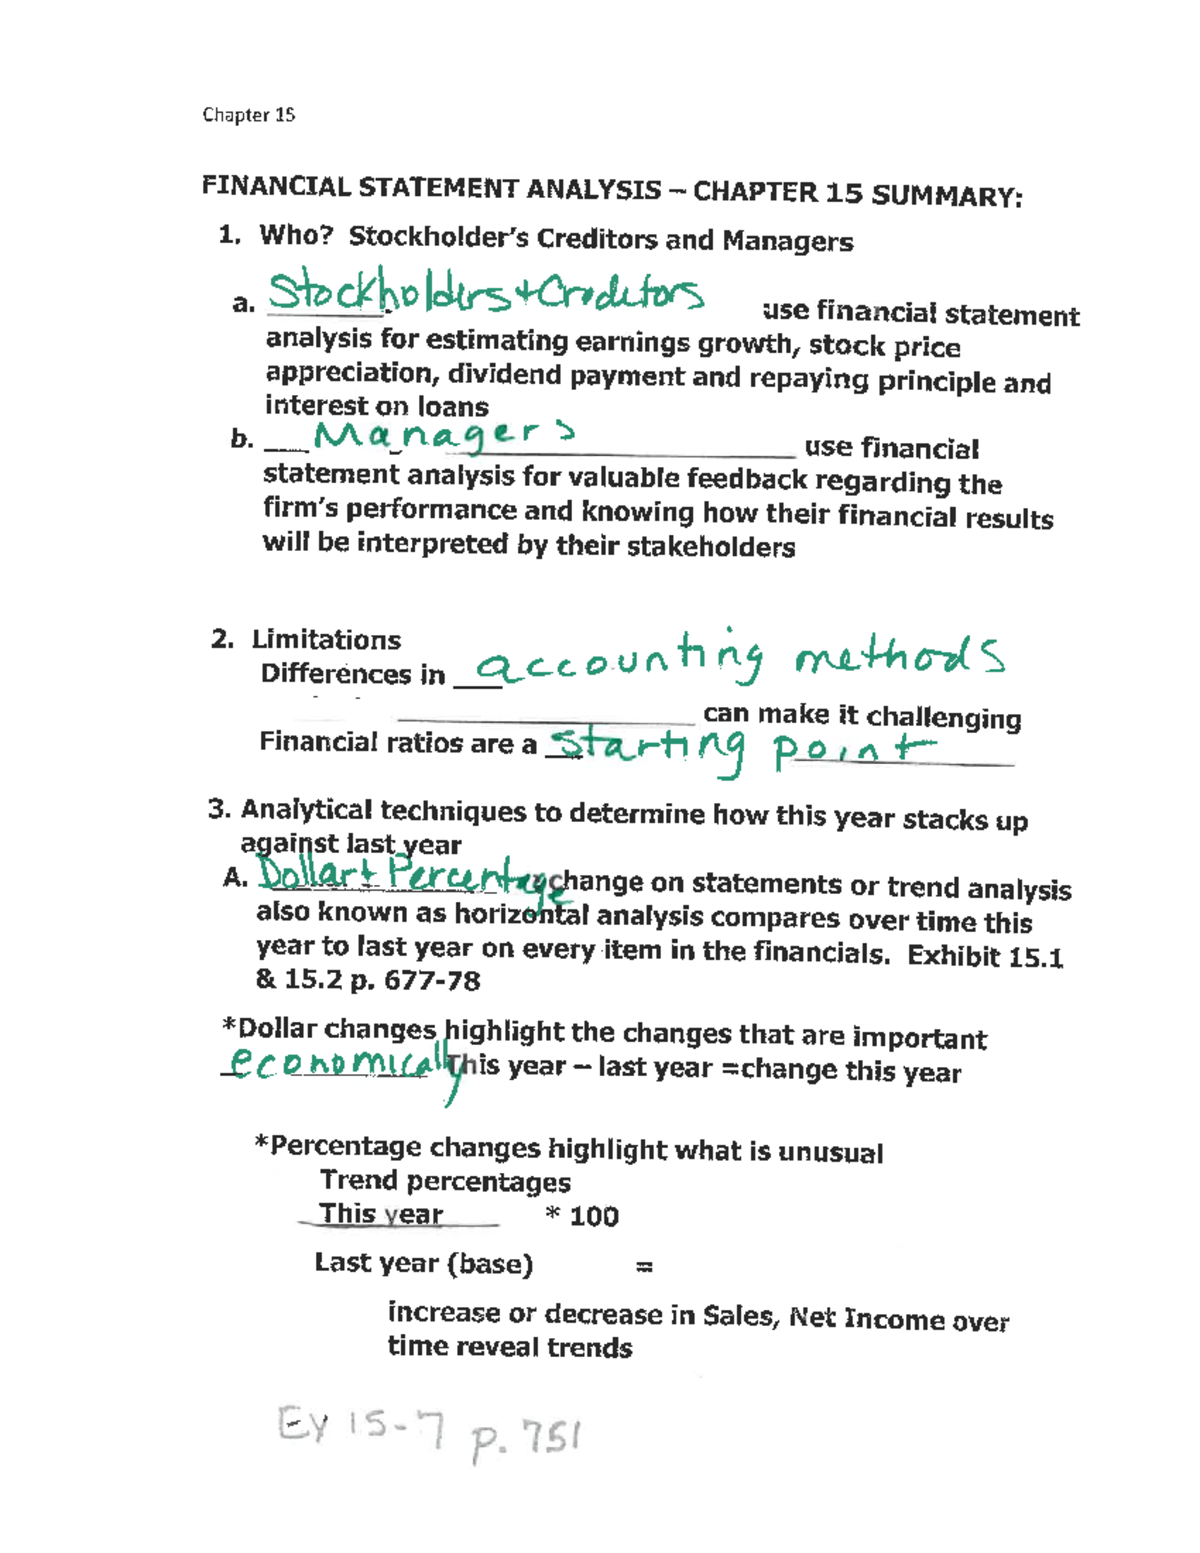 Chapter 15
FINANCIAL STATEMENT ANALYSIS – CHAPTER 15 SUMMARY:
1. Who? Stockholder's Creditors and Managers
a. Stockholders + Creditors use financial statement
analysis for estimating earnings growth, stock price
appreciation, dividend payment and repaying principle and
interest on loans
b. Managers use financial
statement analysis for valuable feedback regarding the
firm's performance and knowing how their financial results
will be interpreted by their stakeholders
2. Limitations
Differences in accounting methods
can make it challenging
Financial ratios are a starting point
3. Analytical techniques to determine how this year stacks up
against last year
A. Dollar + Percentage change on statements or trend analysis
also known as horizontal analysis compares over time this
year to last year on every item in the financials. Exhibit 15.1
& 15.2 p. 677-78
*Dollar changes highlight the changes that are important
economically This year – last year =change this year
*Percentage changes highlight what is unusual
Trend percentages
This year * 100
Last year (base) =
increase or decrease in Sales, Net Income over
time reveal trends
Ey 15-7 p. 751